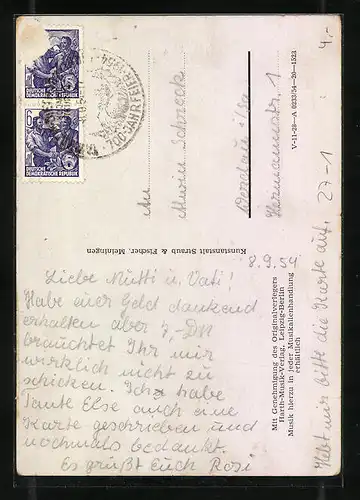 DEUTSCHE
DEMOKRATISCHE REPUBLIK
6
DEUTSCHE
DEMOKRATISCHE REPUBLIK
700-JAHRFEIER 1954
An
Schreck
Hermannstr. 1
V-11-28—A 0233/54—20—1523
4,-
Kunstanstalt Straub & Fischer, Meiningen
Mit Genehmigung des Originalverlegers
Harth-Musik-Verlag, Leipzig-Berlin
Musik hierzu in jeder Musikalienhandlung
erhältlich
8.9.54
Liebe Mutti u. Vati!
Habe euer Geld dankend
erhalten aber 7,-DM
brauchtet Ihr mir
wirklich nicht zu
schicken. Ich habe
Tante Else auch eine
Karte geschrieben und
nochmals bedankt.
Es grüßt Euch Rosi
Hebt mir bitte die Karte auf.
27-1